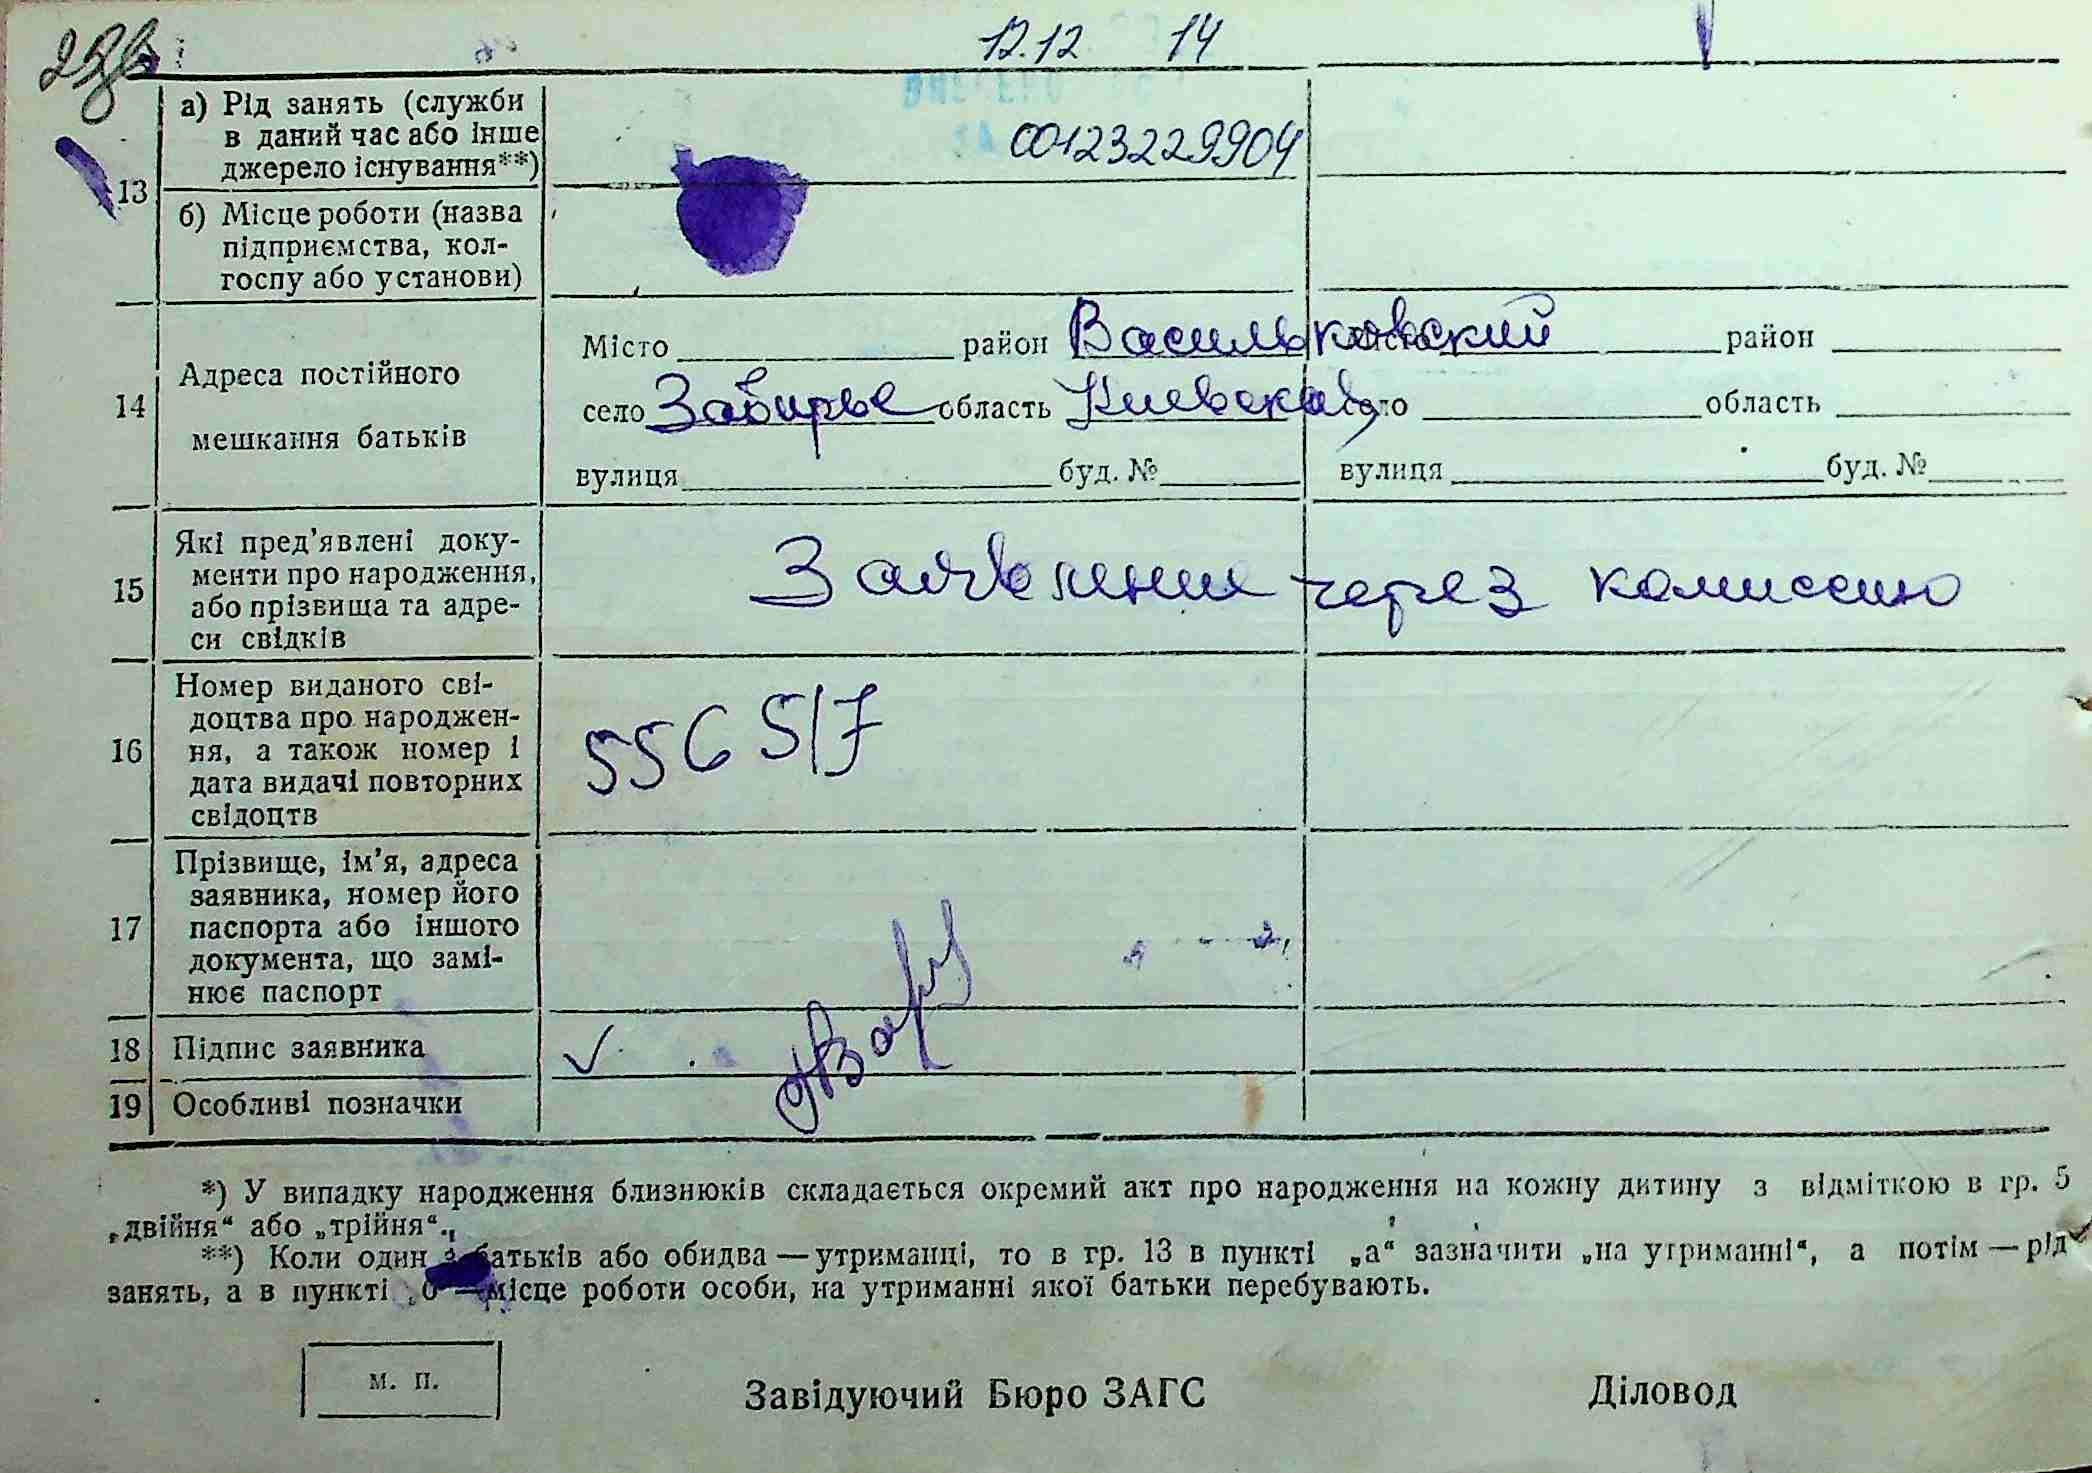 12.12 14
а) Рід занять (служби
в даний час або інше
джерело існування**)
00123229904
13
б) Місце роботи (назва
підприємства, кол-
госпу або установи)
14
Адреса постійного
мешкання батьків
Місто район Васильковский район
село Забирье область Киевская область
вулиця буд. № вулиця буд. №
15
Які пред'явлені доку-
менти про народження,
або прізвища та адре-
си свідків
Заявление через комиссию
16
Номер виданого сві-
доцтва про народжен-
ня, а також номер і
дата видачі повторних
свідоцтв
556 517
17
Прізвище, ім'я, адреса
заявника, номер його
паспорта або іншого
документа, що замі-
нює паспорт
18 Підпис заявника
19 Особливі позначки
*) У випадку народження близнюків складається окремий акт про народження на кожну дитину з відміткою в гр. 5
„двійня“ або „трійня“.
**) Коли один з батьків або обидва — утриманці, то в гр. 13 в пункті „а“ зазначити „на утриманні“, а потім — рід
занять, а в пункті „б — місце роботи особи, на утриманні якої батьки перебувають.
м. п.
Завідуючий Бюро ЗАГС Діловод